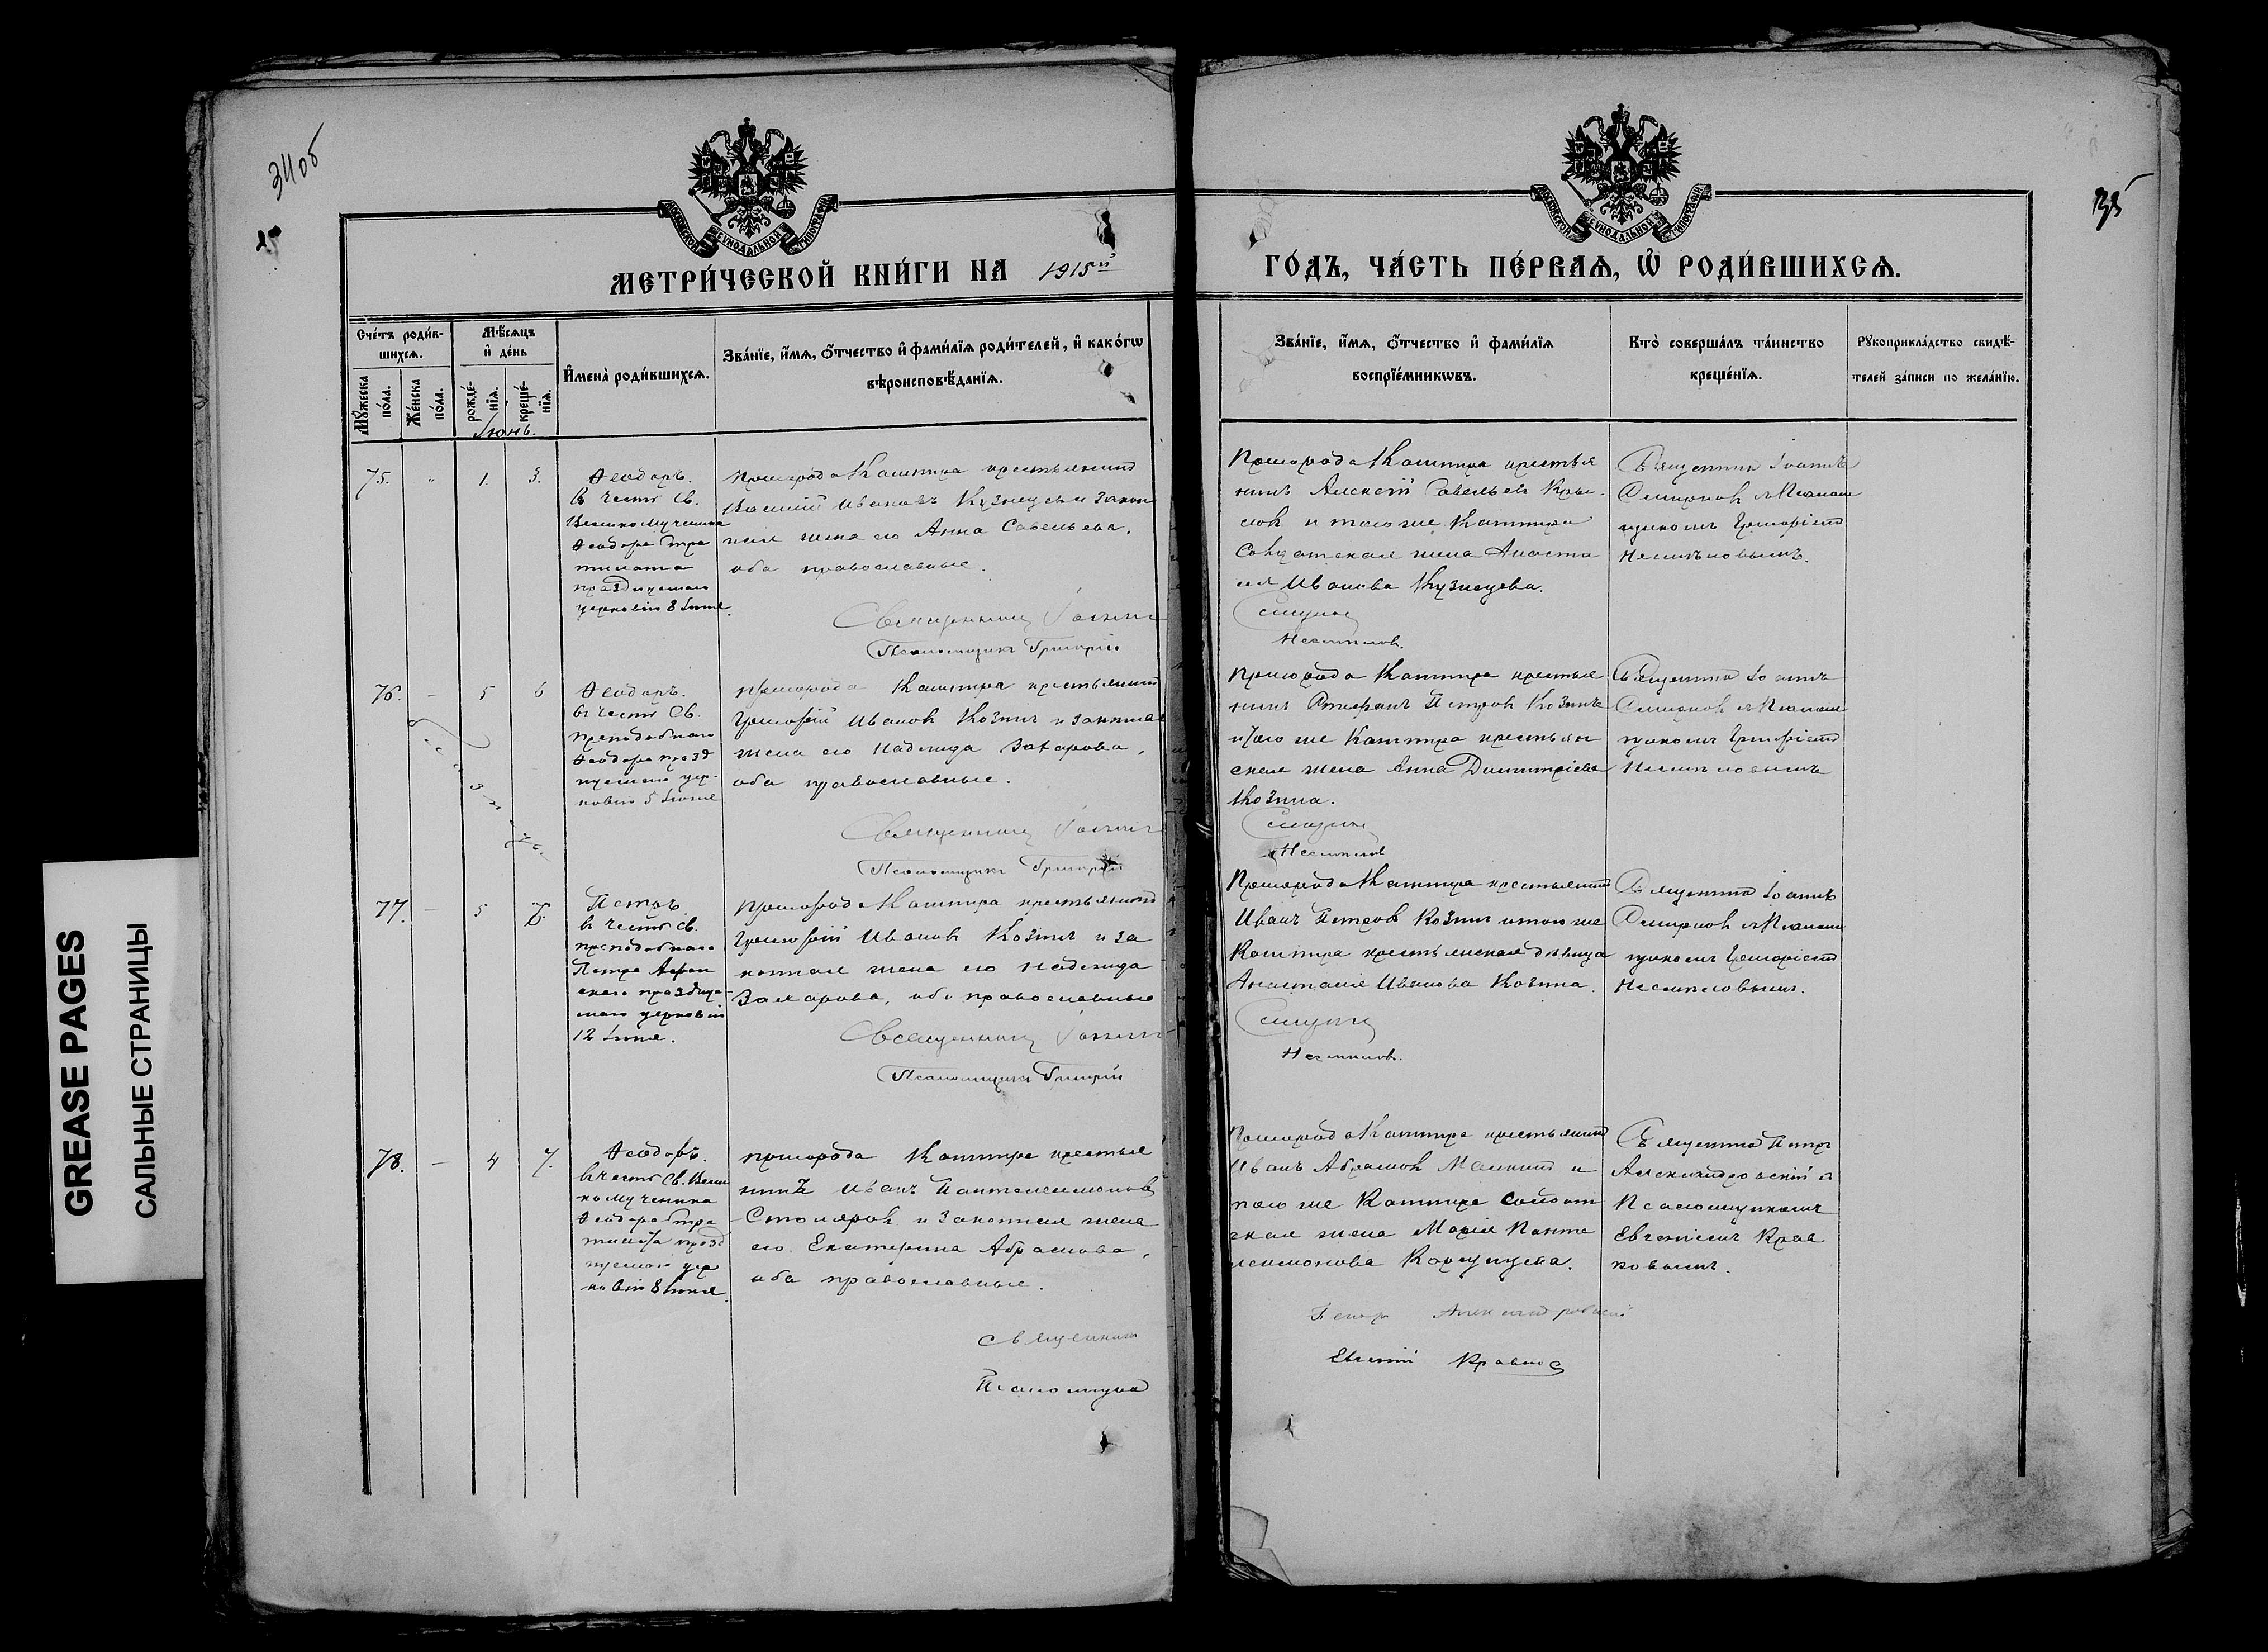 34об
35
МЕТРИ́ЧЕСКОЙ КНИ́ГИ НА 1915й
ГО́ДЪ, ЧА́СТЬ ПЕ́РВАѦ, Ѡ҆ РОДИ́ВШИХСѦ.
МОСКОВСКОЙ СѴНОДАЛЬНОЙ ТИПОГРАФІИ
МОСКОВСКОЙ СѴНОДАЛЬНОЙ ТИПОГРАФІИ
Сче́тъ роди́в-
шихсѧ.
Мꙋ́жеска по́ла.
Же́нска по́ла.
Мѣ́сѧцъ
и҆ де́нь
рожде́-
нїѧ.
креще́-
нїѧ.
И҆мена̀ роди́вшихсѧ.
Зва́нїе, и҆́мѧ, ѻ҆́тчество и҆ фами́лїѧ роди́телей, и҆ како́гѡ
вѣроисповѣ́данїѧ.
Зва́нїе, и҆́мѧ, ѻ҆́тчество и҆ фами́лїѧ
воспрїе́мникѡвъ.
Кто̀ соверша́лъ та́инство
креще́нїѧ.
Рꙋкоприкла́дство свидѣ́-
телей за́писи по жела́нїю.
Іюнь.
75. " 1. 3.
Ѳеодоръ.
въ честь Св.
Великомученика
Ѳеодора Стра
тилата
празднуемаго
церковію 8 Іюня.
Пригорода Кашпира крестьянинъ
Василій Ивановъ Кузнецъ и закон
ная жена его Анна Савельева,
оба православные.
Священникъ Іоаннъ
Псаломщикъ Григорій
Пригорода Кашпира крестья
нинъ Алексѣй Савельев
и того же Кашпира
Солдатская жена Анаста
ия Иванова Кузнецова.
Смирнов
Несмѣлов.
Священник Іоаннъ
Смирнов с Псалом
щиком Григоріем
Несмѣловымъ.
76. - 5 6
близнецы
Ѳеодоръ.
въ честь Св.
преподобнаго
Ѳеодора празд
нуемаго цер-
ковію 5 Іюня
пригорода Кашпира крестьянинъ
Григорій Иванов Козинъ и законная
жена его Надежда Захарова,
оба православные.
Священникъ Іоаннъ
Псаломщикъ Григорій
Пригорода Кашпира крестья
нинъ Стефанъ Петров Козинъ
и того же Кашпира крестьян
ская жена Анна Димитріева
Козина.
Смирнов
Несмѣлов
Священник Іоаннъ
Смирнов с Псалом
щиком Григоріем
Несмѣловымъ
77. - 5 6.
Петръ
въ честь св.
преподобнаго
Петра Афон
скаго празднуе-
маго церковію
12 Іюня.
Пригорода Кашпира крестьянинъ
Григорій Иванов Козинъ и за
конная жена его Надежда
Захарова, оба православные
Священникъ Іоаннъ
Псаломщикъ Григорій
Пригорода Кашпира крестьянинъ
Иванъ Петров Козинъ и того же
Кашпира крестьянская дѣвица
Анастасія Иванова Козина.
Смирнов
Несмѣлов.
Священник Іоаннъ
Смирнов с Псалом
щиком Григоріем
Несмѣловымъ.
78. - 4 7.
Ѳеодоръ.
въ честь Св. Вели
комученика
Ѳеодора Стра
тилата празд
нуемаго цер
ковію 8 Іюня.
пригорода Кашпира крестья
нинъ Иванъ Пантелеимонов
Столяров и законная жена
его Екатерина Абрамова,
оба православные.
Священник
Псаломщик
Пригорода Кашпира крестьянинъ
Иванъ Абрамов и
того же Кашпира солдат
ская жена Марія Панте
леимонова
Петръ Александровскій
Евгеній Кравков
Священник Петръ
Александровскій с
Псаломщиком
Евгеніем Крав
ковым.
GREASE PAGES
САЛЬНЫЕ СТРАНИЦЫ